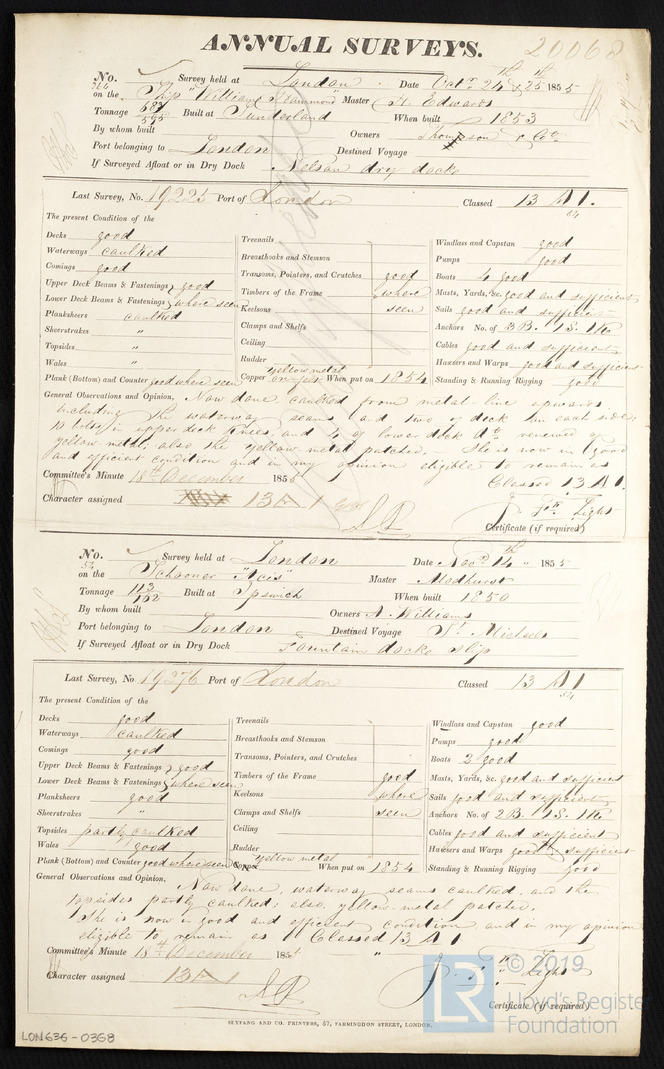 ANNUAL SURVEYS.
20068
No. 766 Survey held at London Date Octr. 24th & 25th 1855
on the Ship "William Hammond" Master H. Edwards
Tonnage 683/595 Built at Sunderland When built 1853
By whom built Owners Thompson & Co.
Port belonging to London Destined Voyage
If Surveyed Afloat or in Dry Dock Nelson dry docks
Last Survey, No. 19225 Port of London Classed 13 A 1.
54
The present Condition of the
Decks good
Waterways caulked
Comings good
Upper Deck Beams & Fastenings } good
Lower Deck Beams & Fastenings } where seen
Planksheers caulked
Sheerstrakes "
Topsides "
Wales "
Plank (Bottom) and Counter good where seen
Treenails
Breasthooks and Stemson
Transoms, Pointers, and Crutches good
Timbers of the Frame where
Keelsons seen
Clamps and Shelfs
Ceiling
Rudder
Copper yellow metal When put on 1854
Windlass and Capstan good
Pumps good
Boats 4 good
Masts, Yards, &c. good and sufficient
Sails good and sufficient
Anchors No. of 3 B. 1 S. 1 K.
Cables good and sufficient
Hawsers and Warps good and sufficient
Standing & Running Rigging good
General Observations and Opinion, Now done caulked from metal line upwards
including the waterway seams and two of deck on each side;
10 bolts in upper deck knees and 4 of lower deck do. renewed of
yellow metal; also the yellow metal patched. She is now in good
and efficient condition and in my opinion eligible to remain as
Classed 13 A 1.
Committee's Minute 18th December 1855
Character assigned 13 A 1
Jn. Light
Certificate (if required)
No. 54 Survey held at London Date Novr. 14th 1855
on the Schooner "Acis" Master Madhurst
Tonnage 113/102 Built at Ipswich When built 1850
By whom built Owners A. Williams
Port belonging to London Destined Voyage St. Michaels
If Surveyed Afloat or in Dry Dock Fountain docks slip
Last Survey, No. 19276 Port of London Classed 13 A 1
54
The present Condition of the
Decks good
Waterways caulked
Comings good
Upper Deck Beams & Fastenings } good
Lower Deck Beams & Fastenings } where seen
Planksheers good
Sheerstrakes "
Topsides partly caulked
Wales good
Plank (Bottom) and Counter good where seen
Treenails
Breasthooks and Stemson
Transoms, Pointers, and Crutches
Timbers of the Frame good
Keelsons where
Clamps and Shelfs seen
Ceiling
Rudder
Copper yellow metal When put on 1854
Windlass and Capstan good
Pumps good
Boats 2 good
Masts, Yards, &c. good and sufficient
Sails good and sufficient
Anchors No. of 2 B. 1 S. 1 K.
Cables good and sufficient
Hawsers and Warps good & sufficient
Standing & Running Rigging good
General Observations and Opinion, Now done, waterway seams caulked, and the
topsides partly caulked; also, yellow metal patched.
She is now in good and efficient condition and in my opinion
eligible to remain as Classed 13 A 1
Committee's Minute 18th December 1855
Character assigned 13 A 1
Light
Certificate (if required)
SEYFANG AND CO. PRINTERS, 57, FARRINGDON STREET, LONDON.
LON636-0368
LR © 2019
Lloyd's Register
Foundation